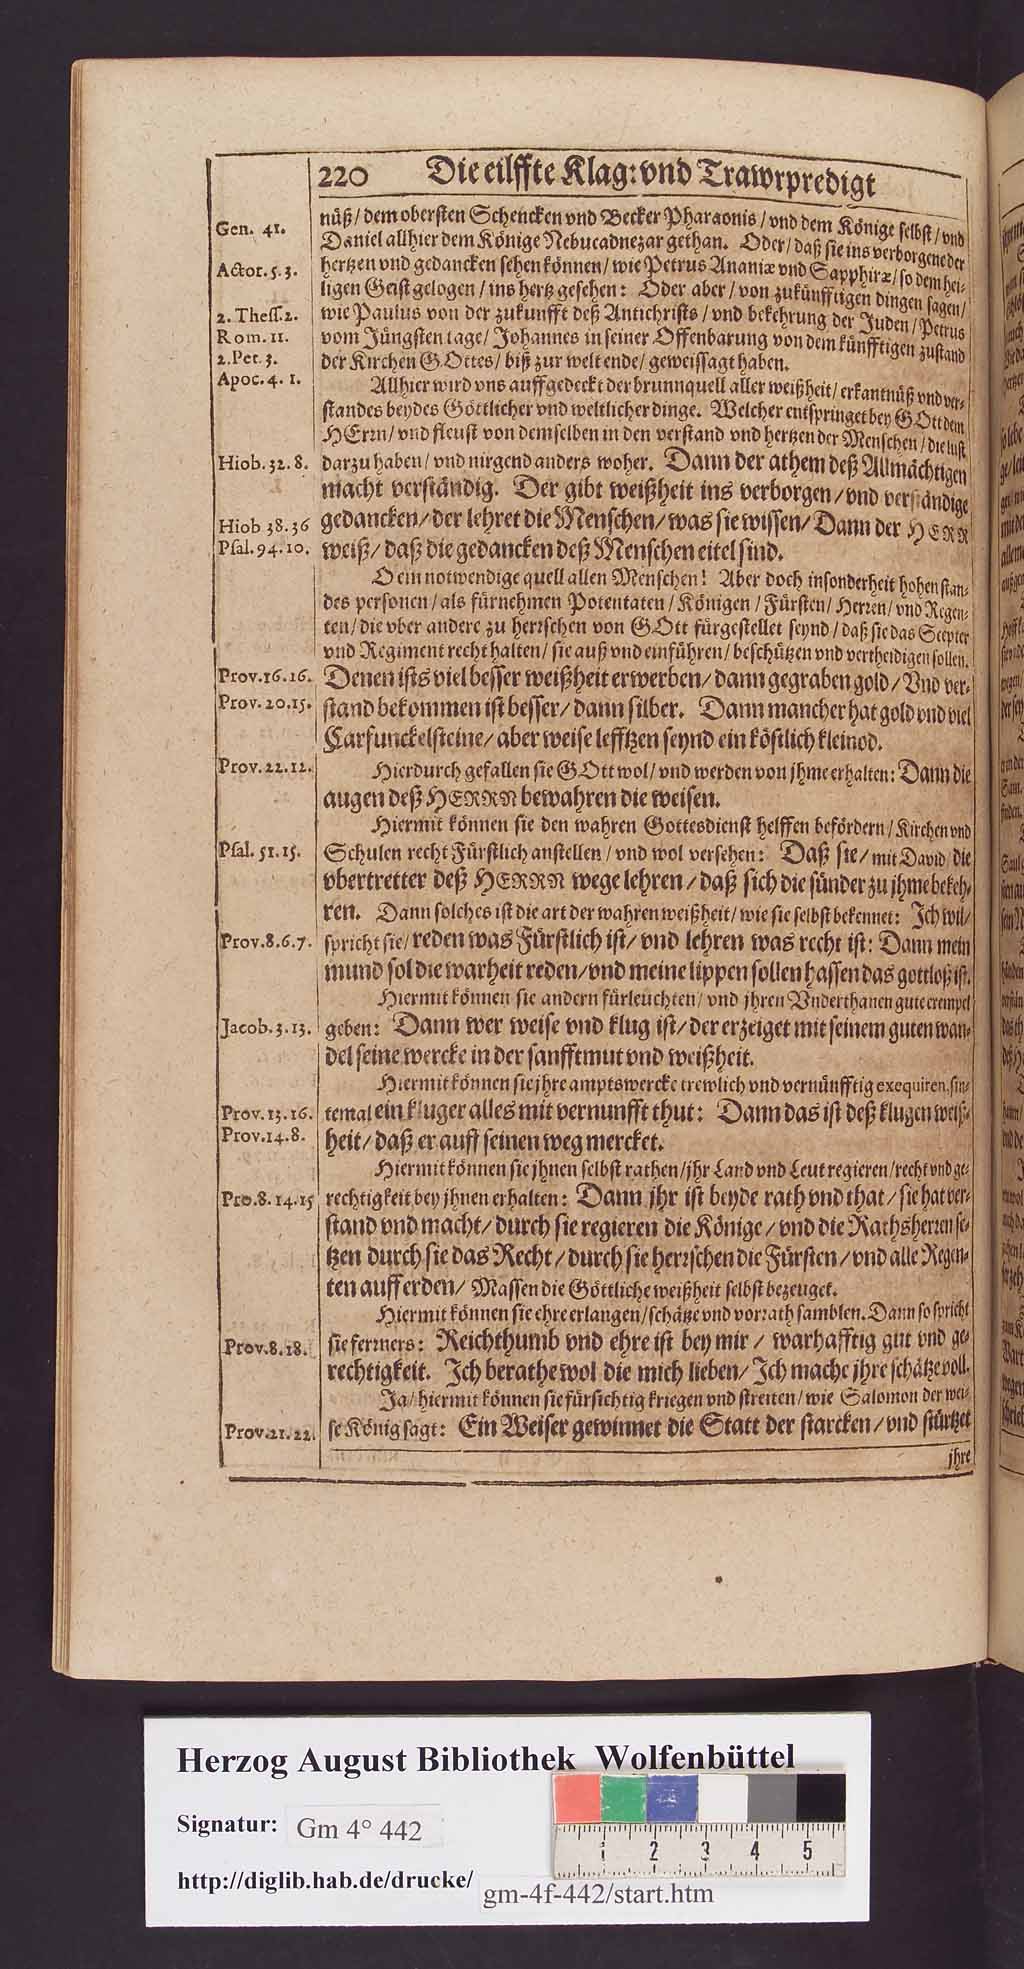 220 Die eilffte Klag: vnd Trawrpredigt
nüß/ dem obersten Schencken vnd Becker Pharaonis/ vnd dem Könige selbst/ vnd
Gen. 41.
Daniel allhier dem Könige Nebucadnezar gethan. Oder/ daß sie ins verborgene der
hertzen vnd gedancken sehen können/ wie Petrus Ananiæ vnd Sapphiræ/ so dem hei-
Actor. 5. 3.
ligen Geist gelogen/ ins hertz gesehen: Oder aber/ von zukünfftigen dingen sagen/
wie Paulus von der zukunfft deß Antichrists/ vnd bekehrung der Juden/ Petrus
2. Thess. 2.
vom Jüngsten tage/ Johannes in seiner Offenbarung von dem künfftigen zustand
Rom. 11.
der Kirchen GOttes/ biß zur welt ende/ geweissagt haben.
2. Pet. 3.
Apoc. 4. 1.
Allhier wird vns auffgedeckt der brunnquell aller weißheit/ erkantnüß vnd ver-
standes beydes Göttlicher vnd weltlicher dinge. Welcher entspringet bey GOtt dem
HErrn/ vnd fleust von demselben in den verstand vnd hertzen der Menschen/ die lust
Hiob. 32. 8.
darzu haben/ vnd nirgend anders woher. Dann der athem deß Allmächtigen
macht verständig. Der gibt weißheit ins verborgen/ vnd verständige
Hiob 38. 36
gedancken/ der lehret die Menschen/ was sie wissen/ Dann der HERR
Psal. 94. 10.
weiß/ daß die gedancken deß Menschen eitel sind.
O ein notwendige quell allen Menschen! Aber doch insonderheit hohen stan-
des personen/ als fürnehmen Potentaten/ Königen/ Fürsten/ Herren/ vnd Regen-
ten/ die vber andere zu herrschen von GOtt fürgestellet seynd/ daß sie das Scepter
vnd Regiment recht halten/ sie auß vnd einführen/ beschützen vnd vertheidigen sollen.
Prov. 16. 16.
Denen ists viel besser weißheit erwerben/ dann gegraben gold/ Vnd ver-
Prov. 20. 15.
stand bekommen ist besser/ dann silber. Dann mancher hat gold vnd viel
Carfunckelsteine/ aber weise lefftzen seynd ein köstlich kleinod.
Prov. 22. 12.
Hierdurch gefallen sie GOtt wol/ vnd werden von jhme erhalten: Dann die
augen deß HERRN bewahren die weisen.
Hiermit können sie den wahren Gottesdienst helffen befördern/ Kirchen vnd
Psal. 51. 15.
Schulen recht Fürstlich anstellen/ vnd wol versehen: Daß sie/ mit David/ die
vbertretter deß HERRN wege lehren/ daß sich die sünder zu jhme bekeh-
ren. Dann solches ist die art der wahren weißheit/ wie sie selbst bekennet: Ich wil/
Prov. 8. 6. 7.
spricht sie/ reden was Fürstlich ist/ vnd lehren was recht ist: Dann mein
mund sol die warheit reden/ vnd meine lippen sollen hassen das gottloß ist.
Hiermit können sie andern fürleuchten/ vnd jhren Vnderthanen gute exempel
Jacob. 3. 13.
geben: Dann wer weise vnd klug ist/ der erzeiget mit seinem guten wan-
del seine wercke in der sanfftmut vnd weißheit.
Hiermit können sie jhre amptswercke trewlich vnd vernünfftig exequiren, sin-
Prov. 13. 16.
temal ein kluger alles mit vernunfft thut: Dann das ist deß klugen weiß-
Prov. 14. 8.
heit/ daß er auff seinen weg mercket.
Hiermit können sie jhnen selbst rathen/ jhr Land vnd Leut regieren/ recht vnd ge-
Pro. 8. 14. 15
rechtigkeit bey jhnen erhalten: Dann jhr ist beyde rath vnd that/ sie hat ver-
stand vnd macht/ durch sie regieren die Könige/ vnd die Rathsherren se-
tzen durch sie das Recht/ durch sie herrschen die Fürsten/ vnd alle Regen-
ten auff erden/ Massen die Göttliche weißheit selbst bezeuget.
Hiermit können sie ehre erlangen/ schätze vnd vorrath samblen. Dann so spricht
Prov. 8. 18.
sie ferrners: Reichthumb vnd ehre ist bey mir/ warhafftig gut vnd ge-
rechtigkeit. Ich berathe wol die mich lieben/ Ich mache jhre schätze voll.
Ja/ hiermit können sie fürsichtig kriegen vnd streiten/ wie Salomon der wei-
Prov. 21. 22.
se König sagt: Ein Weiser gewinnet die Statt der starcken/ vnd stürtzet
jhre
Herzog August Bibliothek Wolfenbüttel
Signatur: Gm 4° 442
http://diglib.hab.de/drucke/ gm-4f-442/start.htm
1 2 3 4 5